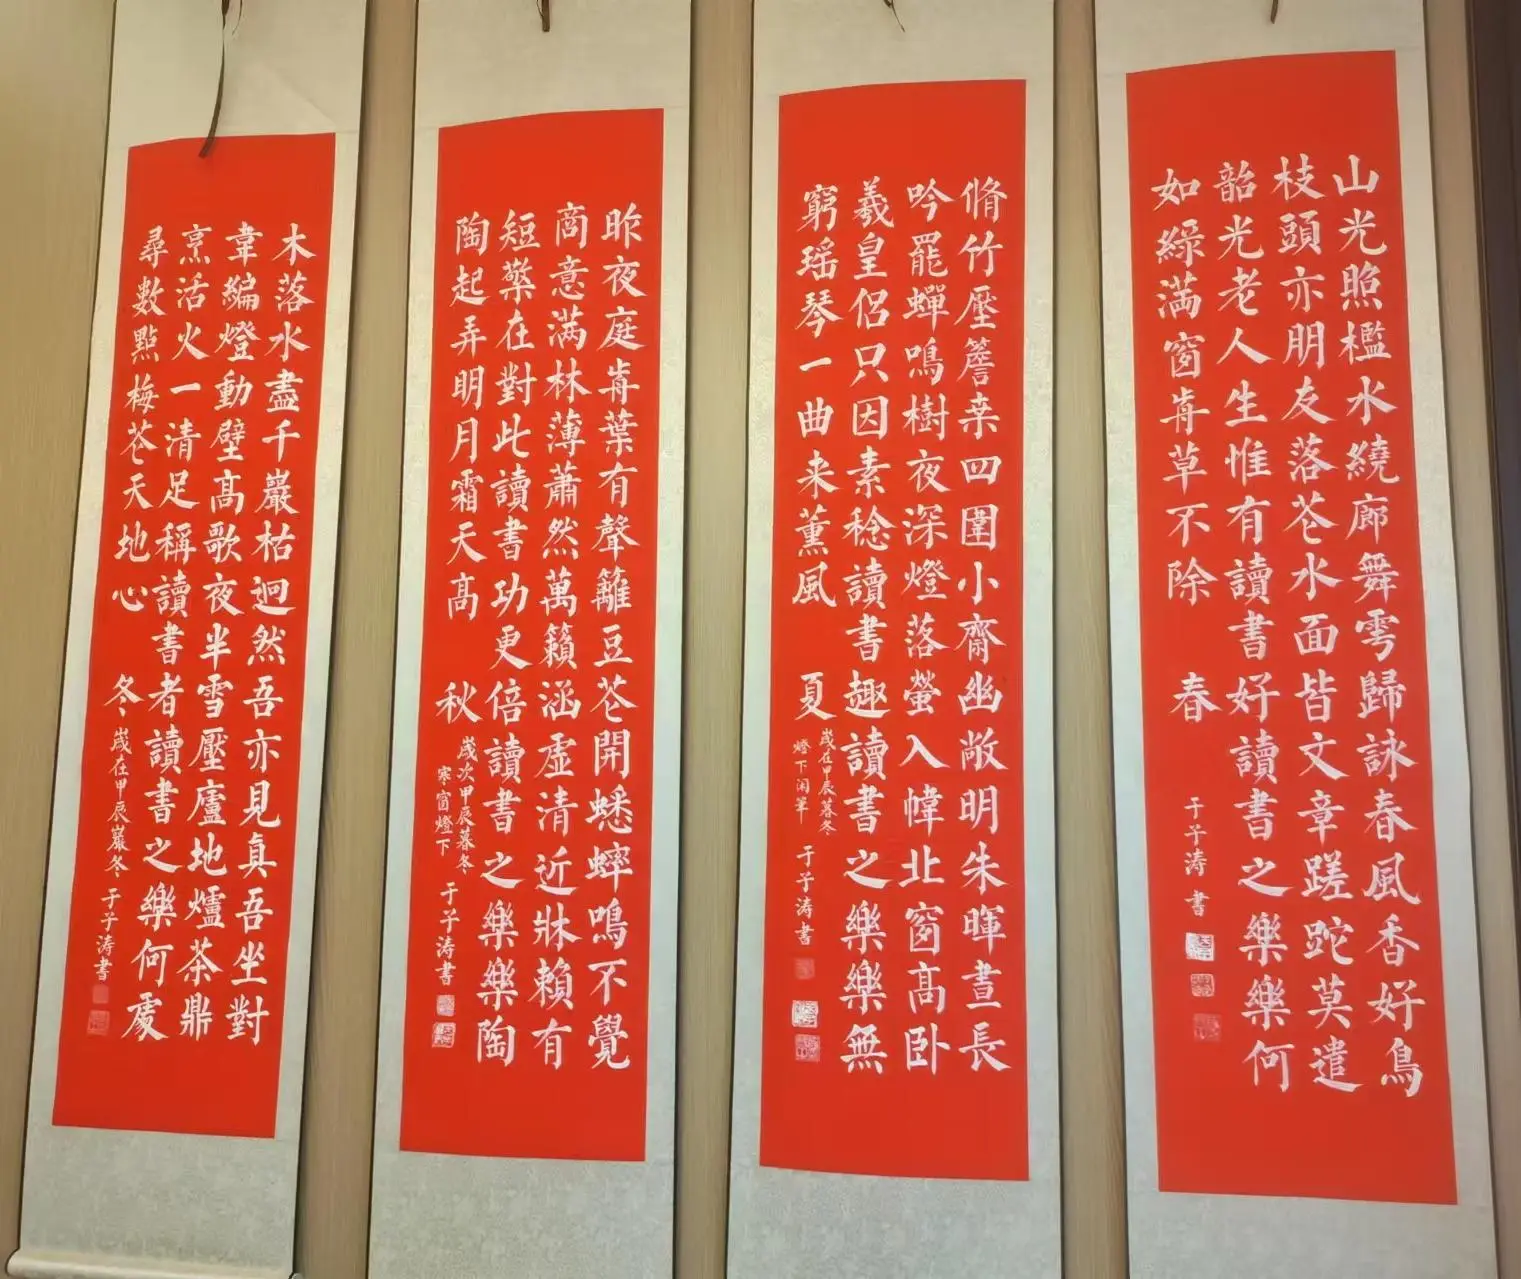 山光照檻水繞廊舞雩歸詠春風香好鳥
枝頭亦朋友落花水面皆文章蹉跎莫遣
韶光老人生惟有讀書好讀書之樂樂何
如綠滿窗前草不除 春
于子涛書
脩竹壓簷桒四圍小齋幽敞明朱暉晝長
吟罷蟬鳴樹夜深燈落螢入幃北窗高卧
羲皇侶只因素稔讀書趣讀書之樂樂無
窮瑶琴一曲来薰風 夏
歲在甲辰暮冬
燈下闲筆 于子涛書
昨夜庭前葉有聲籬豆花開蟋蟀鳴不覺
商意满林薄蕭然萬籟涵虚清近牀賴有
短檠在對此讀書功更倍讀書之樂樂陶
陶起弄明月霜天高 秋
歲次甲辰暮冬
寒窗燈下 于子涛書
木落水盡千巖枯迥然吾亦見真吾坐對
韋編燈動壁高歌夜半雪壓廬地爐茶鼎
烹活火一清足稱讀書者讀書之樂何處
尋數點梅花天地心 冬
歲在甲辰嚴冬 于子涛書